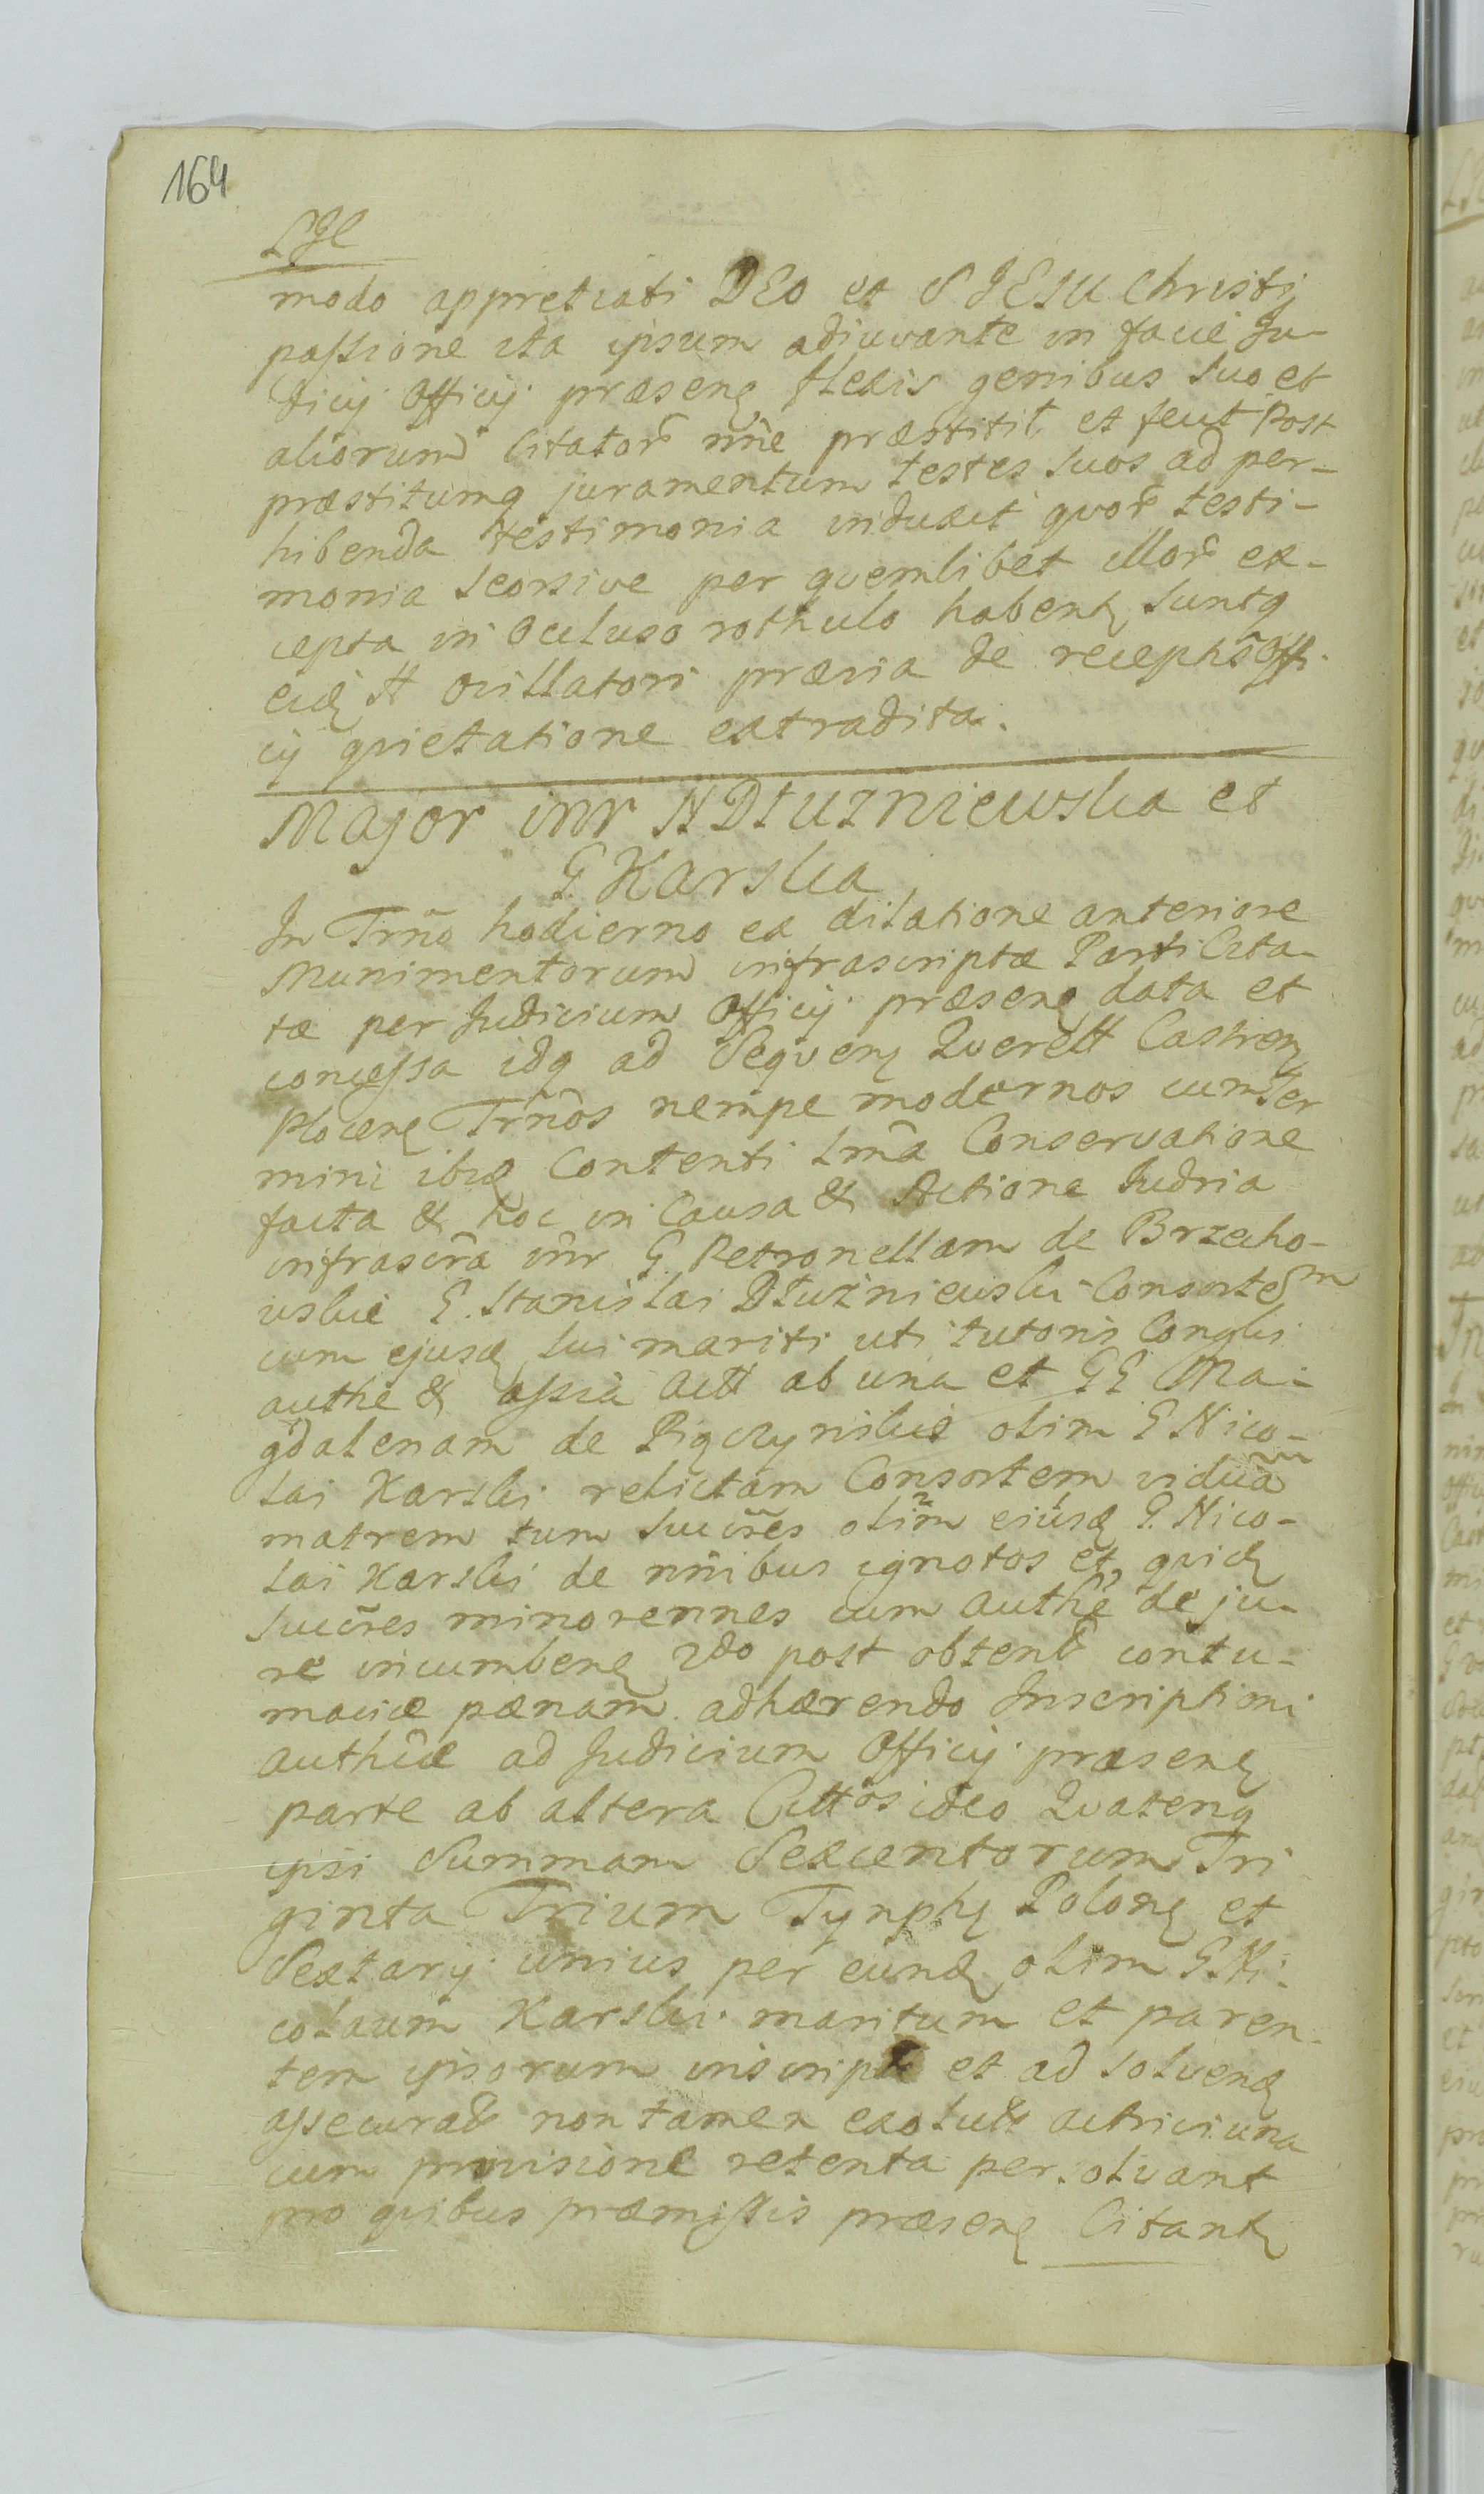 164
modo appretiati DEO et S JESU Christi
passione ita ipsum adiuvante in facie Ju-
dicij Officij praesenę flexis genibus suo et
aliorum Citator̃ nñe praestitit et fecit Post
praestitumq juramentum testes suos ad per-
hibenda testimonia induxit qvor̃ testi-
monia seorsive per qvemlibet illor̃ ex-
cepta in ocluso rothulo habentę suntq
eidę A oscillatori praevia de receptis Offi-
cij qvietatione extradita.
Major inr N Dłużniewska et
G. Karska
In Trño hodierno ex dilatione anteriore
Munimentorum infrascriptae Parti Cita-
tae per Judicium Officij praesenę data et
concessa idq ad Seqvenę Qverell Castrenę
Plocenę Trños nempe modernos cum Ter
mini ibidę Contenti lma Conservatione
facta & hoc in Causa & Actione Judria
infrascra inr G. Petronellam de Brzecho-
wskie G. Stanislai Dłużniewski Consortem
cum ejusdę sui mariti uti tutoris Conglis
authe & assia Actt ab una et GG Ma-
gdalenam de Pigczynskie olim G Nico-
lai Karski relictam Consortem viduam
matrem tum succres olim eiusdę G. Nico-
lai Karski de nñibus ignotos et qvidę
succres minorennes cum authe de ju-
re incumbenę 2do post obtentę contu-
maciae paenam adhaerendo Inscriptioni
authcae ad Judicium Officij praesenę
parte ab altera Cittos ideo Qvatenq
ipsi Summam Sexcentorum Tri
ginta Trium Tynphę Polonę et
Sextarij unius per eundę olim G. Ni-
colaum Karski maritum et paren-
tem ipsorum inscriptę et ad solvendę
assecuratę non tamen exolutę actrici una
cum provisione retenta persolvant
pro qvibus praemissis praesenę Citantę